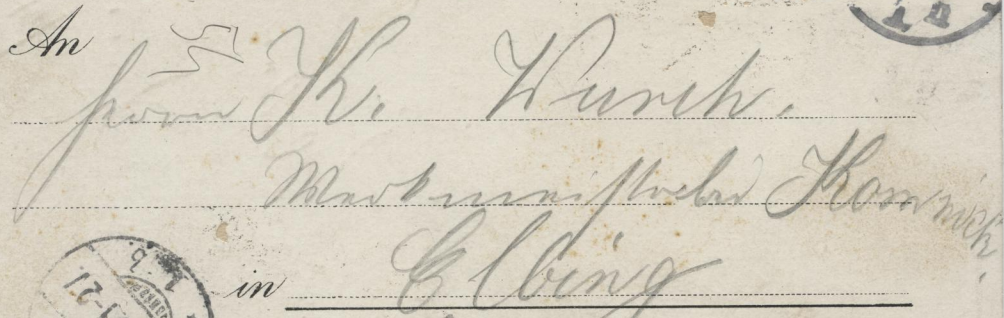 An
Herrn K. Wurch.
Werkmeister bei Komnick.
in Elbing